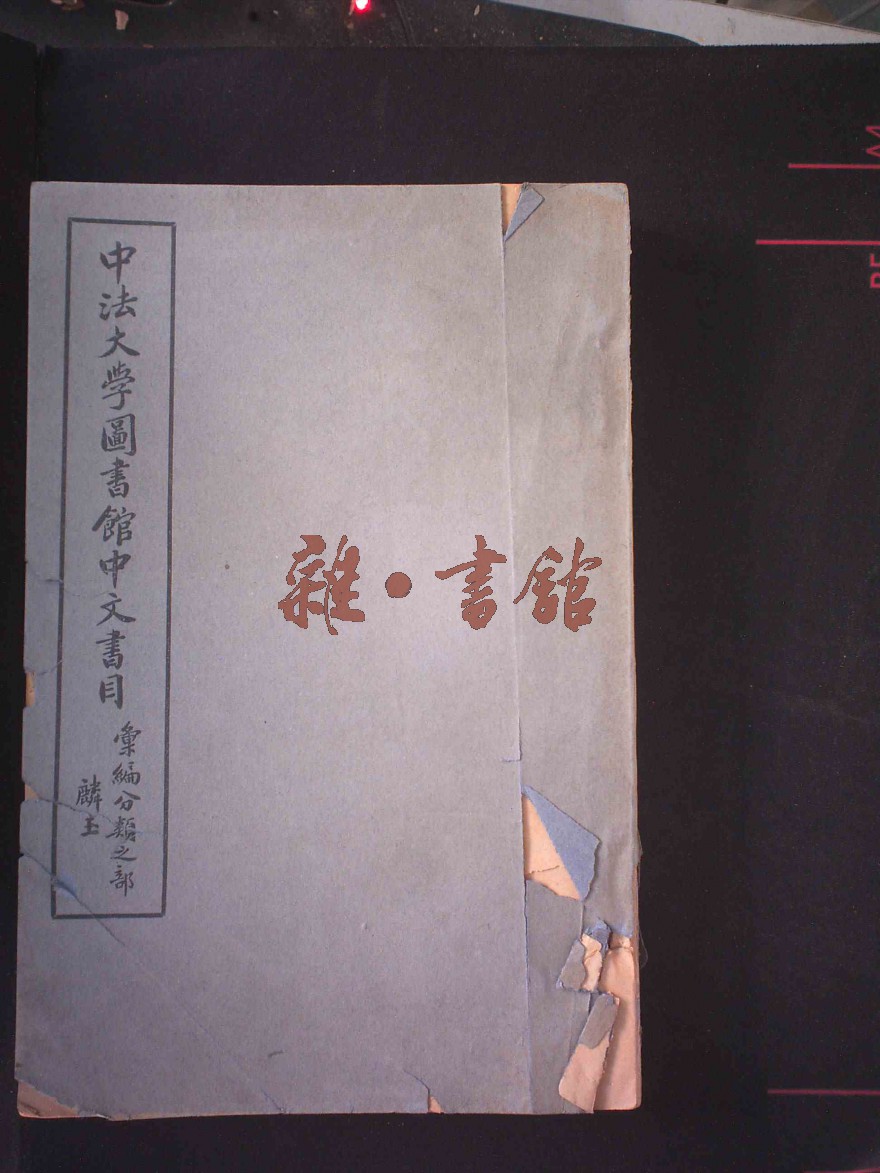 中法大学圖書館中文書目
彙編分類之部
麟玉
雜·書館